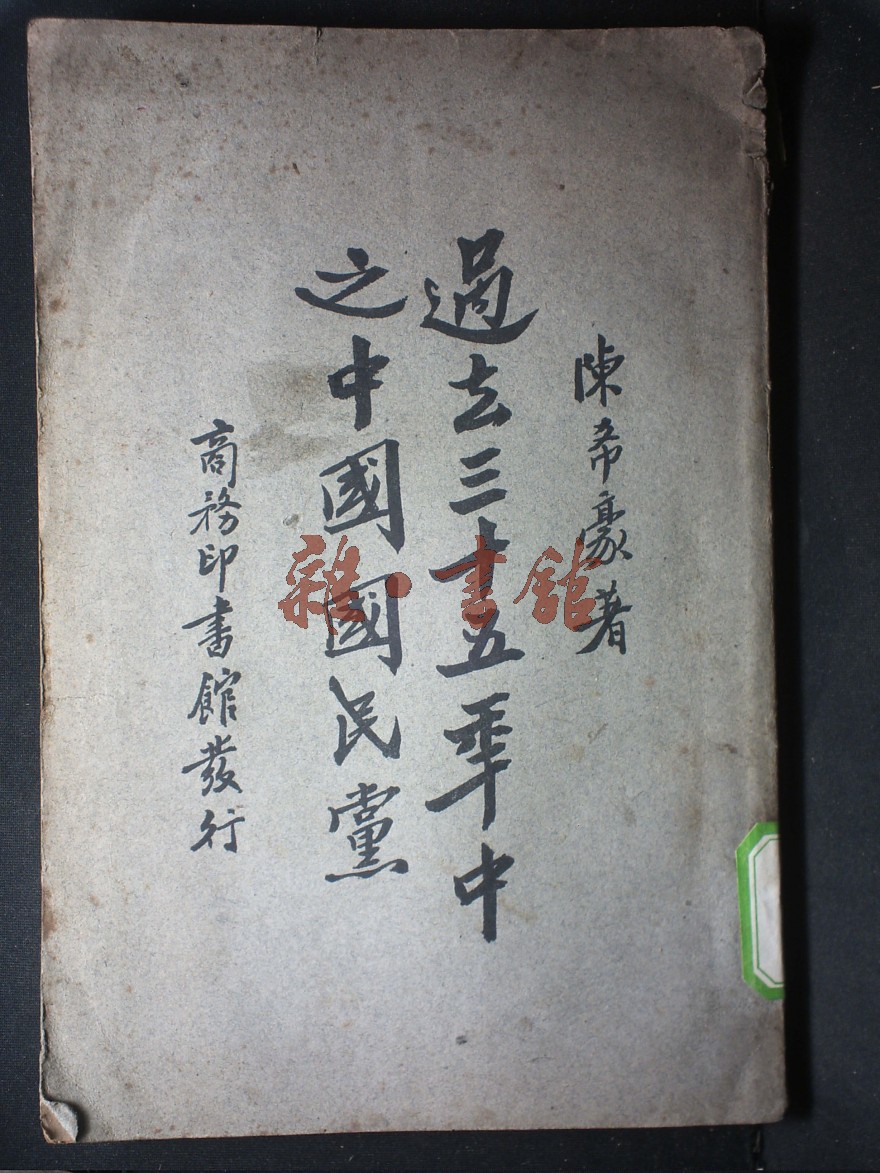 陳希豪著
過去三十五年中
之中國國民黨
商務印書館發行
雜·書館